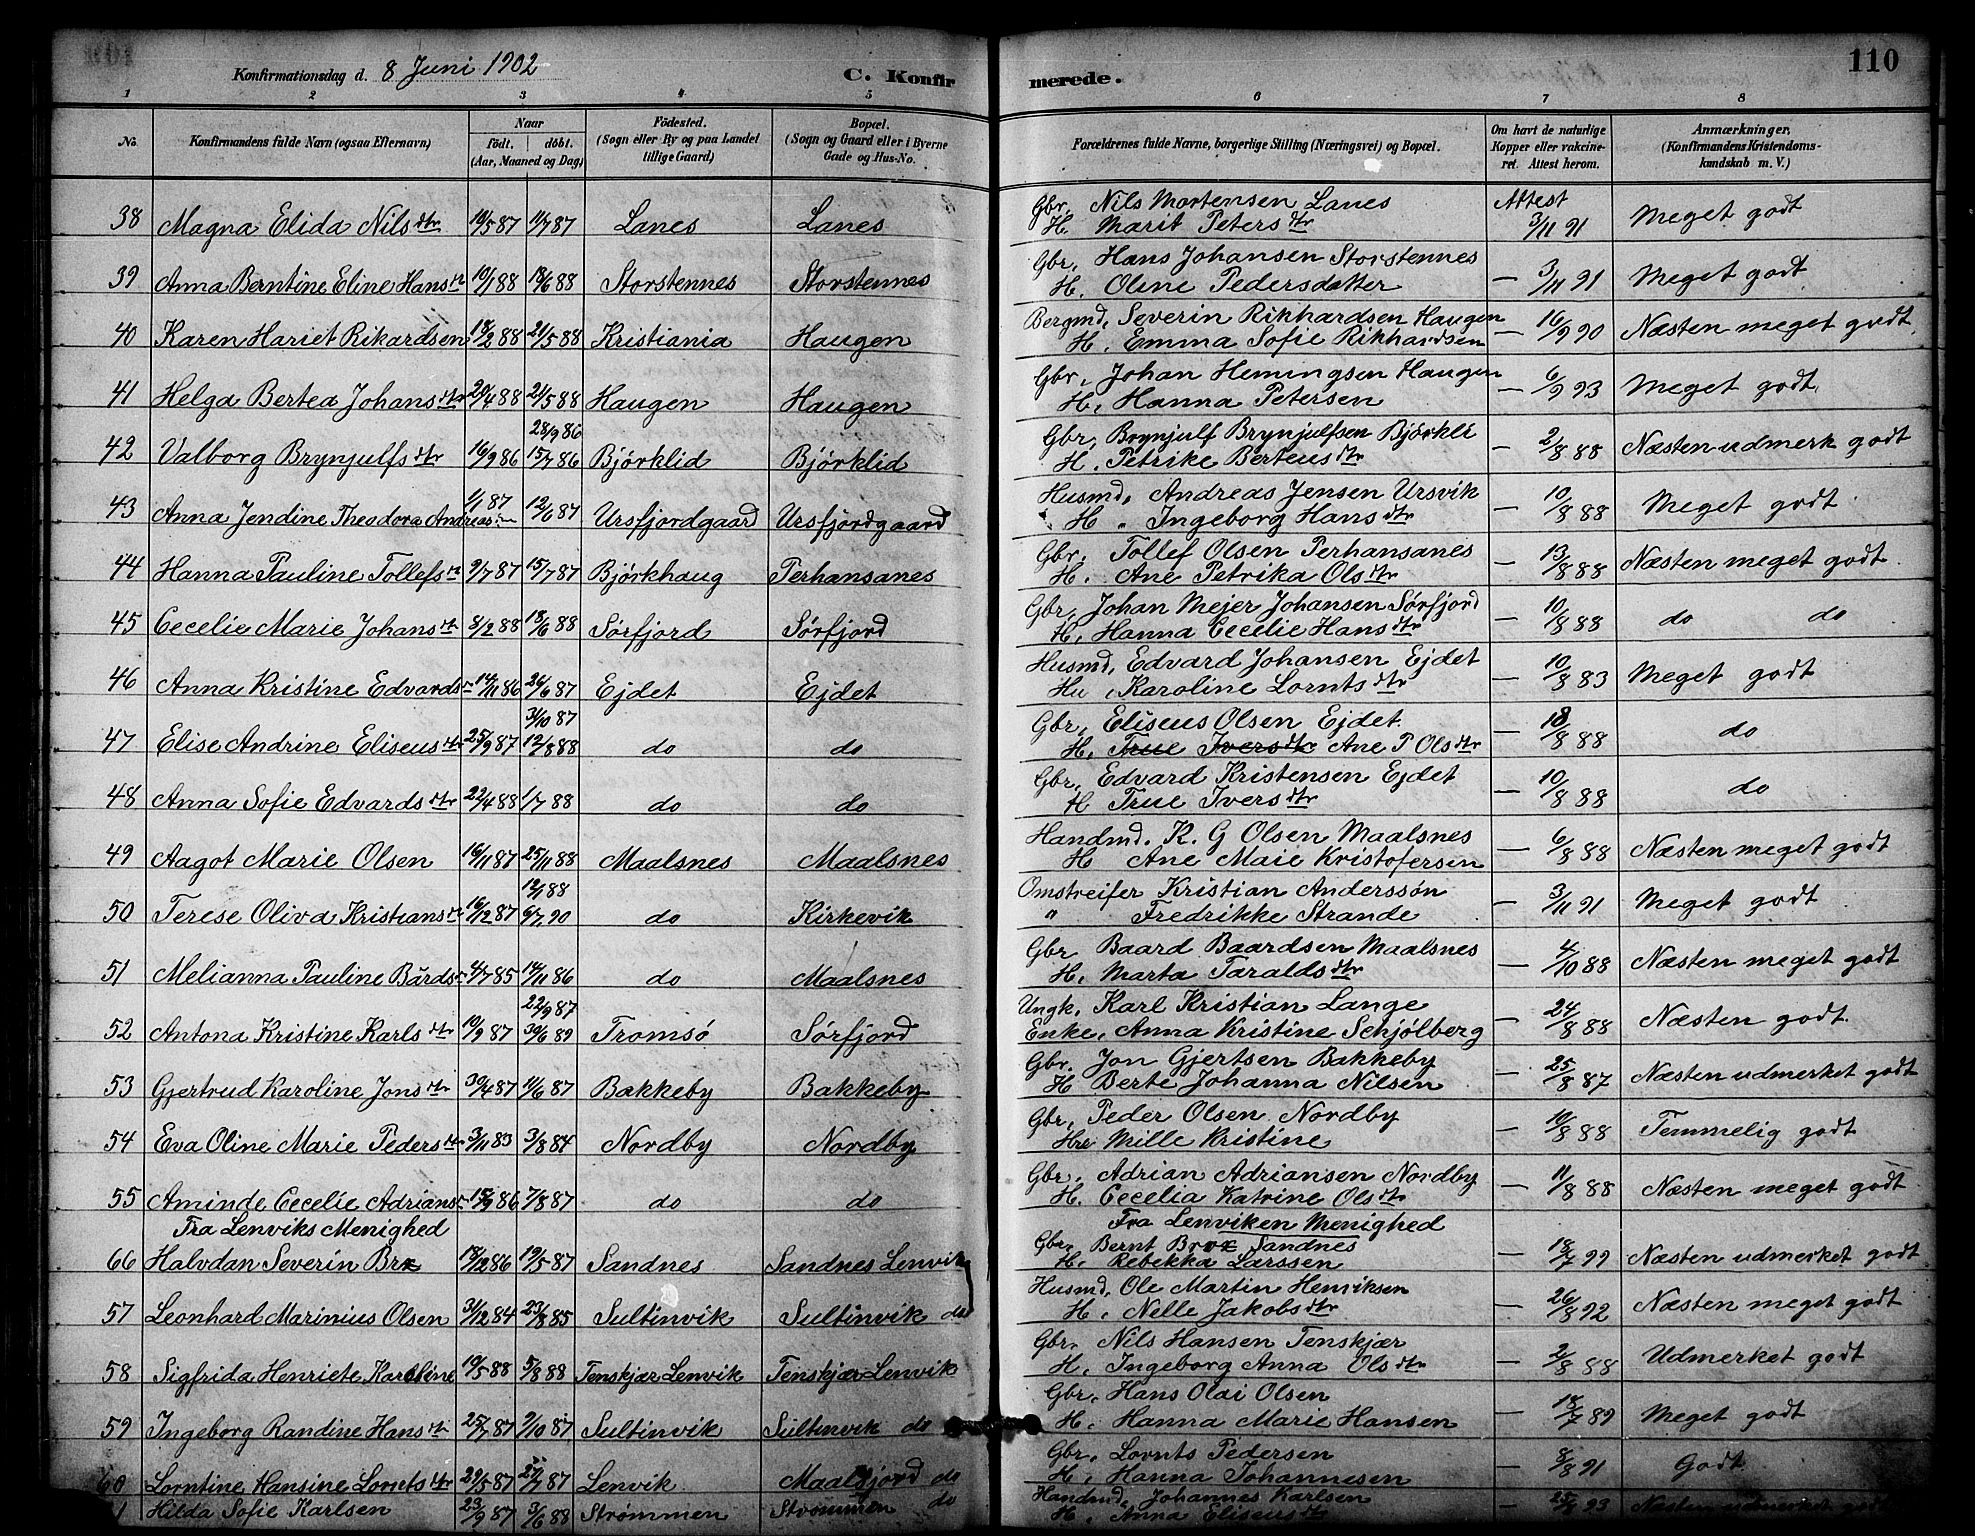 Konfirmationsdag d. 8 Juni 1902 C. Konfirmerede. 110
1 2 3 4 5 6 7 8
No. Konfirmandens fulde Navn (ogsaa Efternavn) Naar födt. döbt. (Aar, Maaned og Dag) Födested. (Sogn eller By og paa Landet tillige Gaard) Bopæl. (Sogn og Gaard eller i Byerne Gade og Hus-No. Forældrenes fulde Navne, borgerlige Stilling (Næringsvei) og Bopæl. Om havt de naturlige Kopper eller vakcineret. Attest herom. Anmærkninger, (Konfirmandens Kristendomskundskab m. V.)
Gbr. Nils Mortensen Lanes Attest
38 Magna Elida Nilsdtr 10/5 87 11/7 87 Lanes Lanes H. Marit Petersdtr 3/11 91 Meget godt
Gbr. Hans Johansen Storstennes
39 Anna Berntine Eline Hansdtr 10/1 88 18/6 88 Storstennes Storstennes H. Oline Pedersdatter — 3/11 91 Meget godt
Bergmd. Severin Rikhardsen Haugen
40 Karen Hariet Rikardsen 18/2 88 21/5 88 Kristiania Haugen H. Emma Sofie Rikhardsen — 16/9 90 Næsten meget godt
Gbr. Johan Hemingsen Haugen
41 Helga Bertea Johansdtr 20/4 88 21/5 88 Haugen Haugen H. Hanna Petersen — 6/9 93 Meget godt
28/9 86 Gbr. Brynjulf Brynjulfsen Bjørkli
42 Valborg Brynjulfsdtr 16/9 86 15/7 86 Bjørklid Bjørklid H. Petrike Berteusdtr — 2/8 88 Næsten udmerk godt
1/1 87 Husmd. Andreas Jensen Ursvik
43 Anna Jendine Theodora Andreas 12/6 87 Ursfjordgaard Ursfjordgaard H. Ingeborg Hansdtr — 10/8 88 Meget godt
Gbr. Tollef Olsen Perhansanes
44 Hanna Pauline Tollefsdtr 9/7 87 15/7 87 Bjørkhaug Perhansanes H. Ane Petrika Olsdtr — 13/8 88 Næsten meget godt
Gbr. Johan Mejer Johansen Sørfjord
45 Cecelie Marie Johansdtr 8/2 88 18/6 88 Sørfjord Sørfjord H. Hanna Cecelie Hansdtr — 10/8 88 do do
Husmd. Edvard Johansen Ejdet
46 Anna Kristine Edvards 14/11 86 26/6 87 Ejdet Ejdet Hu. Karoline Lorntsdtr — 10/8 83 Meget godt
3/10 87 Gbr. Eliseus Olsen Ejdet
47 Elise Andrine Eliseusdtr 25/9 87 12/8 88 do do H. True Iversdtr Ane P Olsdtr — 18/8 88 do
Gbr. Edvard Kristensen Ejdet
48 Anna Sofie Edvardsdtr 22/4 88 1/7 88 do do H True Iversdtr — 10/8 88 do
Handmd. K. G Olsen Maalsnes
49 Aagot Marie Olsen 16/11 87 25/11 88 Maalsnes Maalsnes H Ane Maie Kristofersen — 6/8 88 Næsten meget godt
12/1 88 Omstreifer Kristian Anderssön
50 Terese Oliva Kristiansdtr 16/12 87 6/7 90 do Kirkevik " Fredrikke Strande — 3/11 91 Meget godt
Gbr Baard Baardsen Maalsnes
51 Melianna Pauline Bårds 4/7 85 14/11 86 do Maalsnes H. Marta Taraldsdtr — 4/10 88 Næsten meget godt
22/9 87 Ungk. Karl Kristian Lange
52 Antona Kristine Karlsdtr 10/9 87 30/6 89 Tromsö Sørfjord Enke. Anna Kristine Schjølberg — 24/8 88 Næsten godt
Gbr. Jon Gjertsen Bakkeby
53 Gjertrud Karoline Jonsdtr 30/4 87 11/6 87 Bakkeby Bakkeby H Berte Johanna Nilsen — 25/8 87 Næsten udmerket godt
Gbr. Peder Olsen Nordby
54 Eva Oline Marie Pedersdtr 3/11 83 3/8 84 Nordby Nordby Hu Mille Kristine — 10/8 88 Temmelig godt
Gbr. Adrian Adriansen Nordby
55 Aminde Cecelie Adrians 15/9 86 7/8 87 do do H. Cecelia Katrine Olsdtr — 11/8 88 Næsten meget godt
Fra Lenviks Menighed Fra Lenviken Menighed
Gbr. Bernt Brox Sandnes
66 Halvdan Severin Brox 18/12 86 19/5 87 Sandnes Sandnes Lenvik H. Rebekka Larssen — 18/7 99 Næsten udmerket godt
Husmd. Ole Martin Henriksen
57 Leonhard Marinius Olsen 31/12 84 23/8 85 Sultinvik Sultinvik do H. Nelle Jakobsdtr — 26/8 92 Næsten meget godt
Gbr. Nils Hansen Tenskjær
58 Sigfrida Henriete Karoline 10/5 88 5/8 88 Tenskjær Lenvik Tenskjær Lenvik H. Ingeborg Anna Olsdtr — 2/8 88 Udmerket godt
Gbr. Hans Olai Olsen
59 Ingeborg Randine Hansdtr 25/7 87 9/10 87 Sultinvik Sultinvik do H. Hanna Marie Hansen — 18/7 89 Meget godt
Gbr. Lornts Pedersen
60 Lorntine Hansine Lorntsdtr 29/5 87 Lenvik Maalsfjord do H. Hanna Johannesen — 8/8 91 Godt
Handmd. Johannes Karlsen
1 Hilda Sofie Karlsen 23/9 87 3/6 88 Strømmen Strømmen do H. Anna Eliseusdtr — Næsten udmerket godt